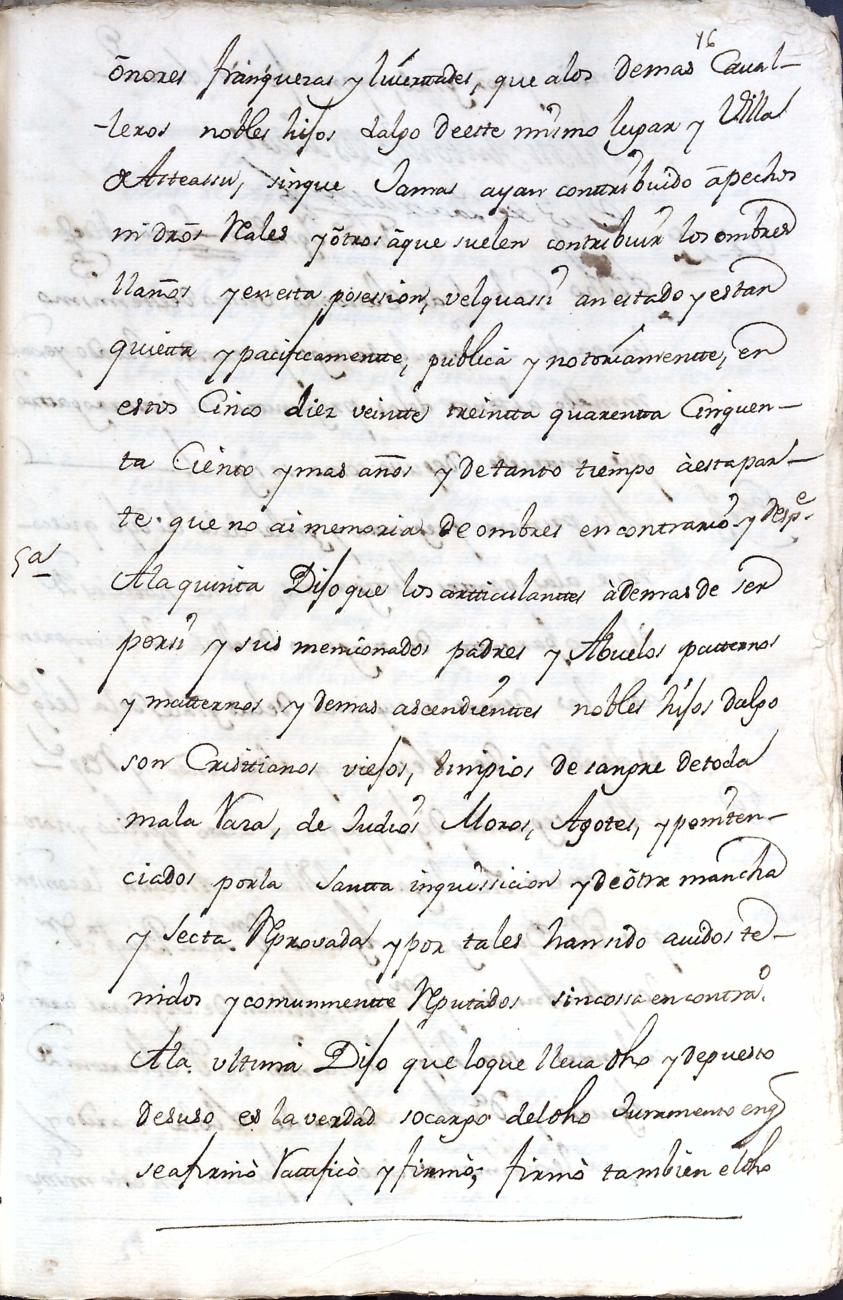 16
õnores franquezas y livertades, que alos demas Caval-
-leros nobles hijos dalgo deeste mismo lugar y Villa
de Asteassu, sinque Jamas ayan contribuido â pechos
ni dr̃os Rales y õtros âque suelen contribuir los ombres
llaños y en esta posession, velquassi an estado y estan
quietta y pacificamentte, publica y notoriamentte, en
estos Cinco diez veintte treintta quarentta Cinquen-
ta Ciento y mas años y de tanto tiempo à esta par-
te que no ai memoria de ombres en contrario y desp.e
5a
Ala quinta Dijo que los artticulanttes àdemas de ser
porsi y sus mencionados padres y Abuelos patternos
y matternos y demas ascendienttes nobles hijos dalgo
son Cristtianos viejos, limpios de sangre de toda
mala Raza, de Judios Moros, Agotes, y peniten-
ciados por la Santta inquissicion y de õtra mancha
y secta Reprovada y por tales han sido avidos te-
nidos y comunmentte Reputados sin cossa en contrao.
Ala ultima Dijo que loque lleva dho y depuesto
desuso es la verdad socargo deldho Juramento en q
se afirmò Rattificò y firmò; firmò tambien eldho